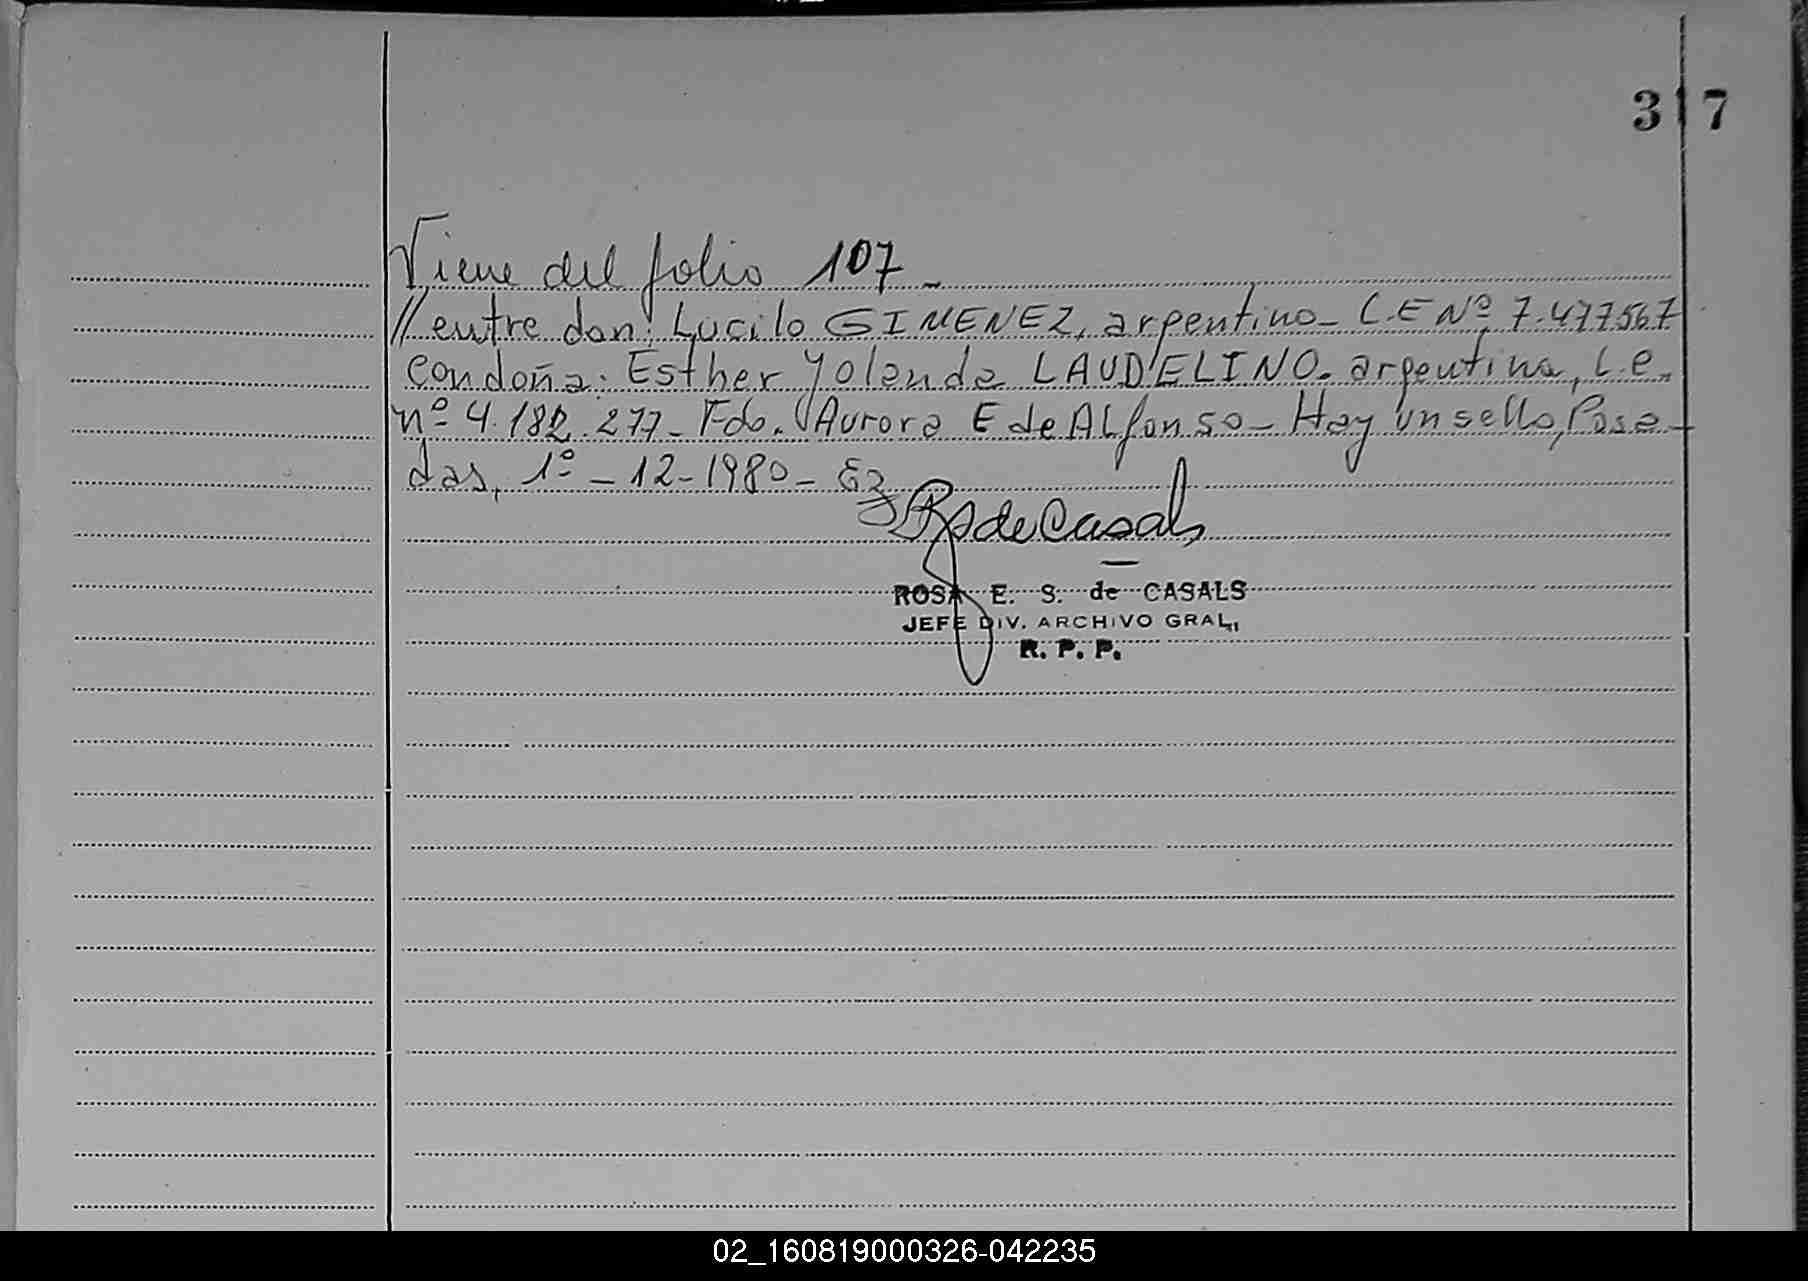 317
Viene del folio 107 -
// entre don: Lucilo GIMENEZ, argentino - L.E Nº 7.477567
con doña: Esther Yolanda LAUDELINO. argentina, L.e.
nº 4.182.277 - Fdo. Aurora E de ALfonso - Hay un sello, Posa-
das, 1º - 12 - 1980 -
R S de Casals
ROSA E. S. de CASALS
JEFE DIV. ARCHIVO GRAL,
R. P. P.
02_160819000326-042235